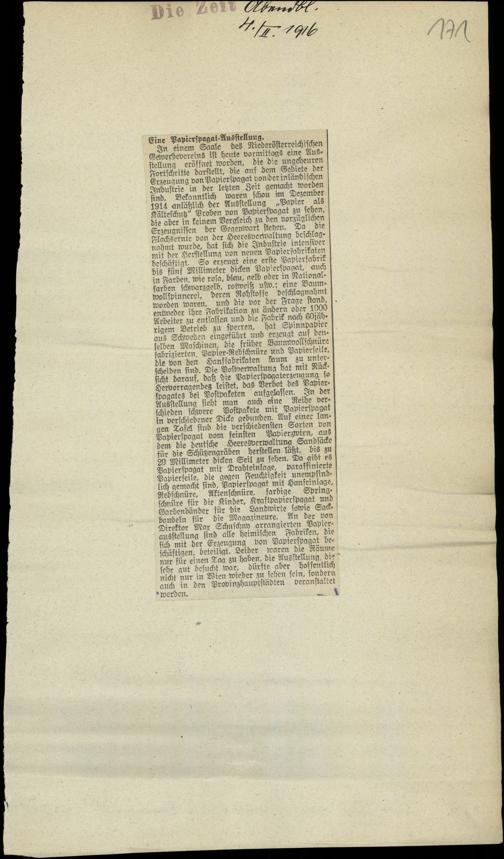 Die Zeit
Abendbl.
4./II. 1916
171
Eine Papierspagat-Ausstellung.
In einem Saale des Niederösterreichischen
Gewerbevereins ist heute vormittags eine Aus-
stellung eröffnet worden, die die ungeheuren
Fortschritte darstellt, die auf dem Gebiete der
Erzeugung von Papierspagat von der inländischen
Industrie in der letzten Zeit gemacht worden
sind. Bekanntlich waren schon im Dezember
1914 anläßlich der Ausstellung „Papier als
Kälteschutz" Proben von Papierspagat zu sehen,
die aber in keinem Vergleich zu den vorzüglichen
Erzeugnissen der Gegenwart stehen. Da die
Flachsernte von der Heeresverwaltung beschlag-
nahmt wurde, hat sich die Industrie intensiver
mit der Herstellung von neuen Papierfabrikaten
beschäftigt. So erzeugt eine erste Papierfabrik
bis fünf Millimeter dicken Papierspagat, auch
in Farben, wie rosa, blau, gelb oder in National-
farben schwarzgelb, rotweiß usw.; eine Baum-
wollspinnerei, deren Rohstoffe beschlagnahmt
worden waren, und die vor der Frage stand,
entweder ihre Fabrikation zu ändern oder 1000
Arbeiter zu entlassen und die Fabrik nach 60jäh-
rigem Betrieb zu sperren, hat Spinnpapier
aus Schweden eingeführt und erzeugt auf den-
selben Maschinen, die früher Baumwollschnüre
fabrizierten, Papier-Rebschnüre und Papierseile,
die von den Hanffabrikaten kaum zu unter-
scheiden sind. Die Postverwaltung hat mit Rück-
sicht darauf, daß die Papierspagaterzeugung so
Hervorragendes leistet, das Verbot des Papier-
spagates bei Postpaketen aufgelassen. In der
Ausstellung sieht man auch eine Reihe ver-
schieden schwere Postpakete mit Papierspagat
in verschiedener Dicke gebunden. Auf einer lan-
gen Tafel sind die verschiedensten Sorten von
Papierspagat vom feinsten Papierzwirn, aus
dem die deutsche Heeresverwaltung Sandsäcke
für die Schützengräben herstellen läßt, bis zu
20 Millimeter dicken Seil zu sehen. Da gibt es
Papierspagat mit Drahteinlage, paraffinierte
Papierseile, die gegen Feuchtigkeit unempfind-
lich gemacht sind, Papierspagat mit Hanfeinlage,
Rebschnüre, Aktenschnüre, farbige Spring-
schnüre für die Kinder, Kraftpapierspagat und
Garbenbänder für die Landwirte sowie Sack-
bandeln für die Magazineure. An der von
Direktor Max Schuschny arrangierten Papier-
ausstellung sind alle heimischen Fabriken, die
sich mit der Erzeugung von Papierspagat be-
schäftigen, beteiligt. Leider waren die Räume
nur für einen Tag zu haben, die Ausstellung, die
sehr gut besucht war, dürfte aber hoffentlich
nicht nur in Wien wieder zu sehen sein, sondern
auch in den Provinzhauptstädten veranstaltet
werden.